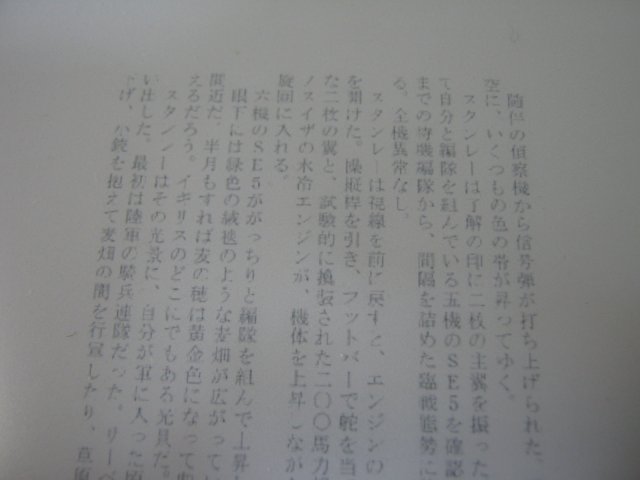 随伴の偵察機から信号弾が打ち上げられた。
空に、いくつもの色の帯が昇ってゆく。
スタンレーは了解の印に二枚の主翼を振った
て自分と編隊を組んでいる五機のSE5を確認
までの待機編隊から、間隔を詰めた臨戦態勢に
る。全機異常なし。
スタンレーは視線を前に戻すと、エンジンの
を開けた。操縦桿を引き、フットバーで舵を当
た二枚の翼と、試験的に換装された二〇〇馬力
ノスイザの水冷エンジンが、機体を上昇しなが
旋回に入れる。
六機のSE5ががっちりと編隊を組んで上昇
眼下には緑色の絨毯のような麦畑が広がってい
間近だ。半月もすれば麦の穂は黄金色になって
えるだろう。イギリスのどこにでもある光景だ。
スタンレーはその光景に、自分が軍に入った
い出した。最初は陸軍の騎兵連隊だった。サーベ
下げ、小銃を抱えて麦畑の間を行軍したり、草原